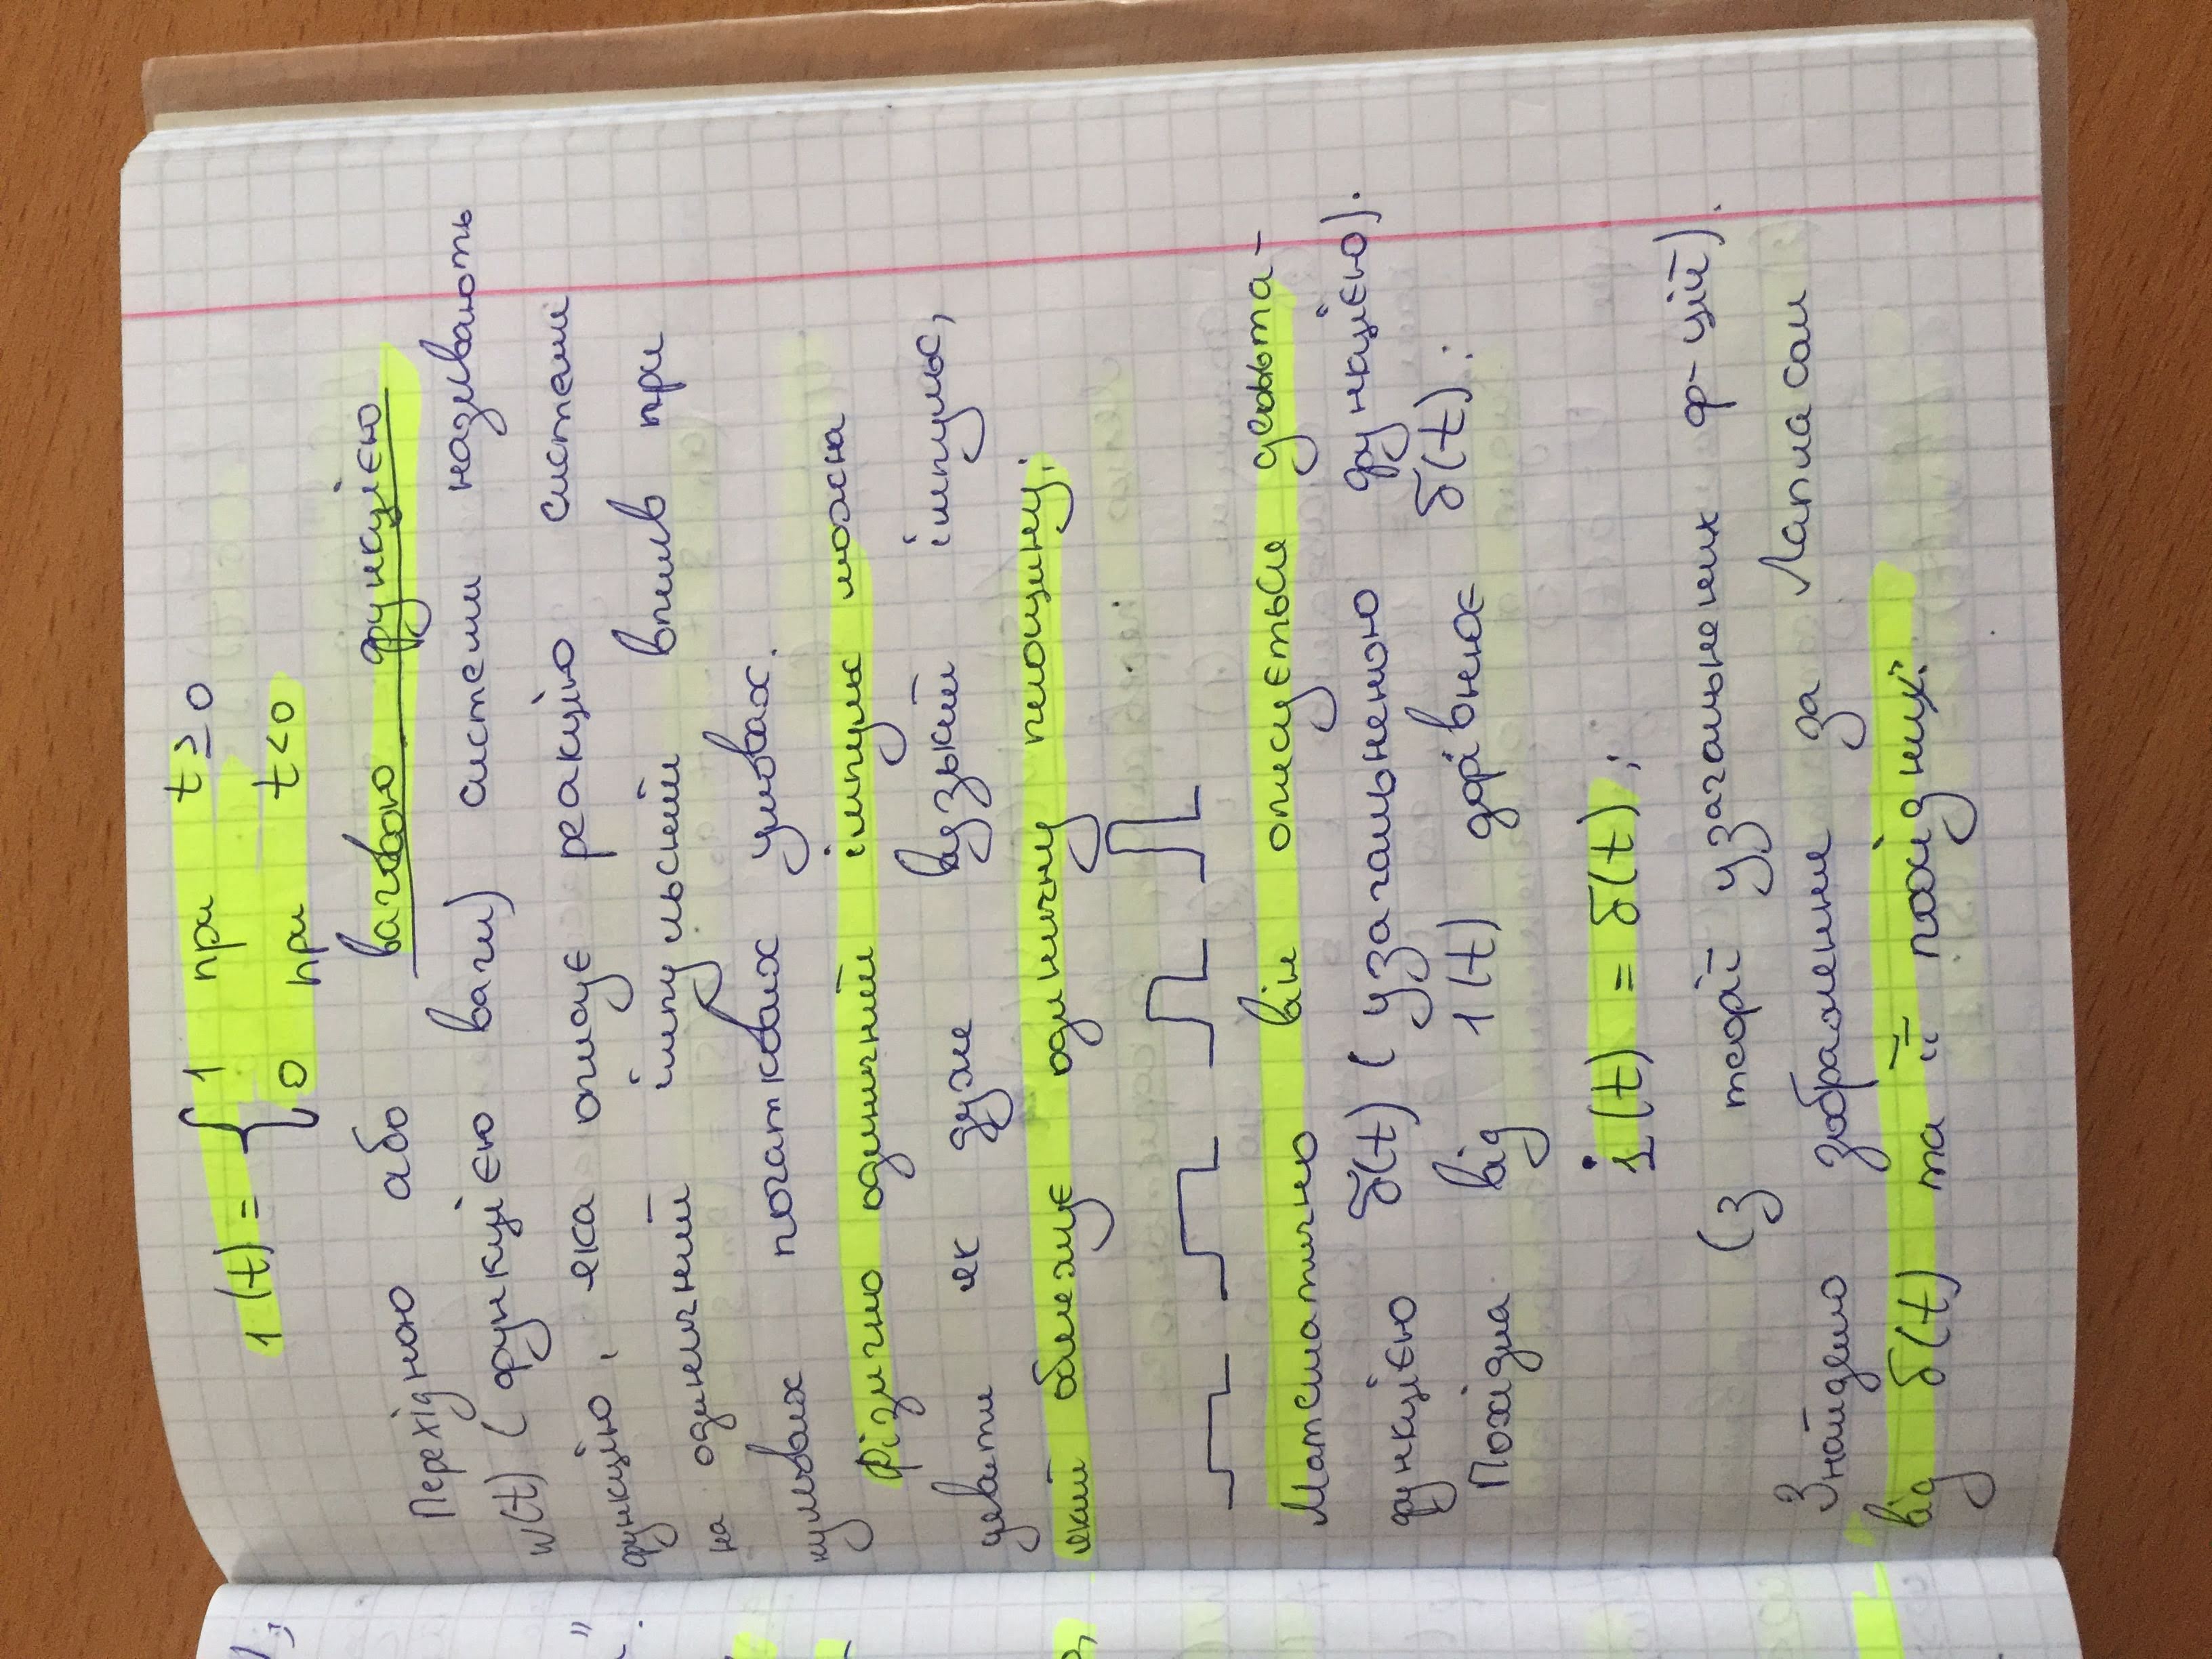 1(t) = { 1 при t ≥ 0
0 при t < 0
Перехідною або ваговою функцією
w(t) (функцією ваги) системи називають
функцію, яка описує реакцію системи
на одиничний імпульсний вплив при
нульових початкових умовах.
Фізично одиничний імпульс можна
уявити як дуже вузький імпульс,
який обмежує одиничну площину;
Математично він описується дельта-
функцією δ(t) (узагальненою функцією).
Похідна від 1(t) дорівнює δ(t):
1̇(t) = δ(t);
(з теорії узагальнених ф-цій).
Знайдемо зображення за Лапласом
від δ(t) та її похідних: